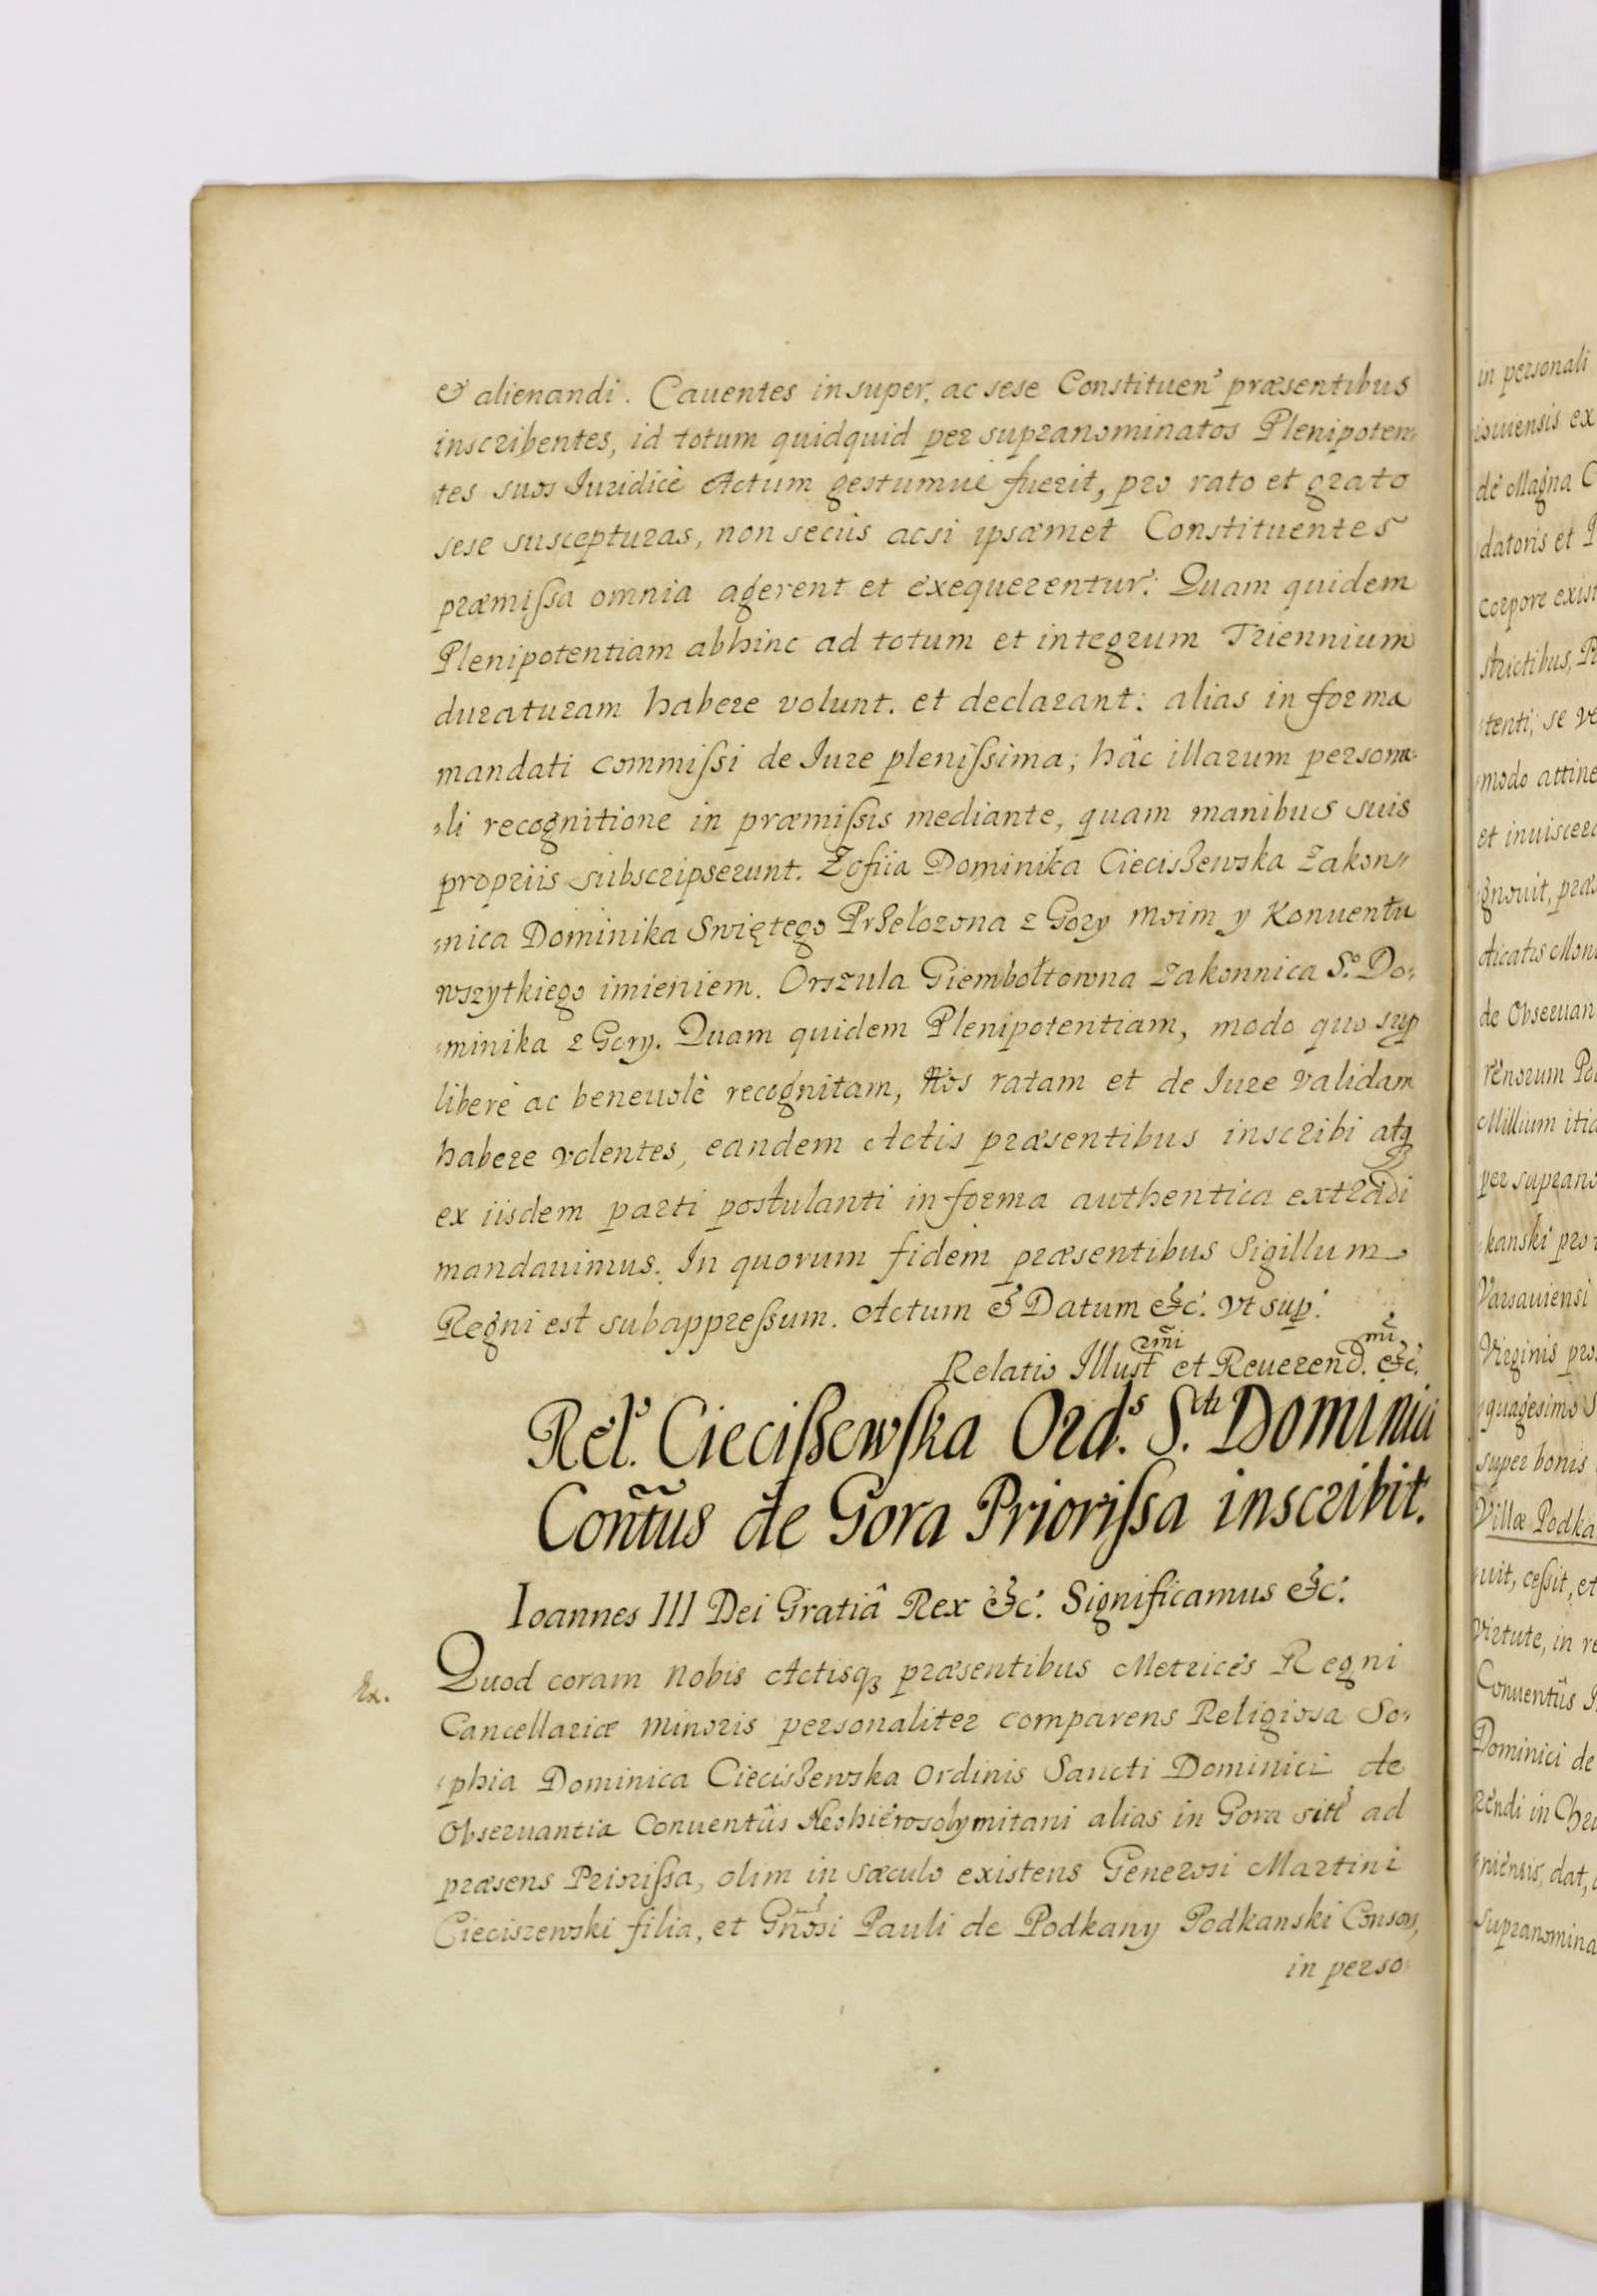 & alienandi. Cauentes insuper, ac sese Constituen̾ præsentibus
inscribentes, id totum quidquid per supranominatos Plenipoten
tes suos Juridicè Actum gestumue fuerit, pro rato et grato
sese suscepturas, non secùs acsi ipsæmet Constituentes
præmiſsa omnia agerent et exequerentur. Quam quidem
Plenipotentiam abhinc ad totum et integrum Triennium
duraturam habere volunt. et declarant: alias in forma
mandati commiſsi de Jure pleniſsima; hâc illarum persona
li recognitione in præmiſsis mediante, quam manibus suis
propriis subscripserunt. Zofiia Dominika Ciecisзewska Zakon
nica Dominika Swiętego Prзełozona z Gory moim y Konuentu
wszytkiego imieniem. Orszula Giembołtowna Zakonnica S.º Do
minika z Gory. Quam quidem Plenipotentiam, modo quo sup
liberè ac beneuolè recognitam, Nos ratam et de Jure validam
habere volentes, eandem Actis præsentibus inscribi atq
ex iisdem parti postulanti in forma authentica extradi
mandauimus. In quorum fidem præsentibus Sigillum
Regni est subappreſsum. Actum & Datum &c. vt sup.
Relatio Illust͠rmi et Reuerend.mi &c.
Rel. Cieciſзewſka Ord.s S.cti Dominici
Con̄tus de Gora Prioriſsa inscribit.
Ioannes III Dei Gratiâ Rex &c. Significamus &c.
Ex.
Quod coram nobis Actisqꝫ præsentibus Metrices Regni
Cancellariæ minoris personaliter comparens Religiosa So
phia Dominica Ciecisзewska ordinis Sancti Dominici de
Obseruantia Conuentûs Neohierosolymitani alias in Gora sitt ad
præsens Prioriſsa, olim in sæculo existens Generosi Martini
Ciecisзewski filia, et Gnosi Pauli de Podkany Podkanski Conson,
in perso
in personali
isuiensis ex
de Magna C
datoris et P
corpore exist
strictibus, R
tenti; se ve
modo attine
et inuiscera
gnouit, præ
dicatis Mon
de Obseruan
renorum Po
Millium itid
per suprano
kanski pro
Varsauiensi
Virginis pro
quagesimo S
super bonis
Villæ Podka
uit, ceſsit, et
virtute, in re
Conuentûs
Dominici de
rendi in Chr
niensis, dat,
supranomina